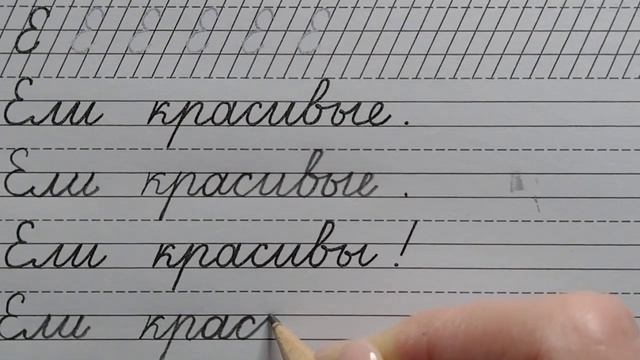 Е Е Е Е Е Е
Ели красивые.
Ели красивые .
Ели красивы!
Ели крас